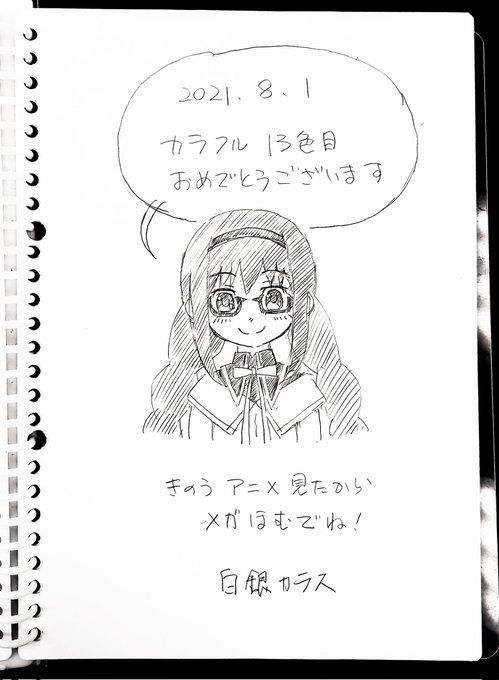 2021. 8. 1
カラフル 13色目
おめでとうございます
きのう アニメ 見たから
メガほむでね!
白銀カラス